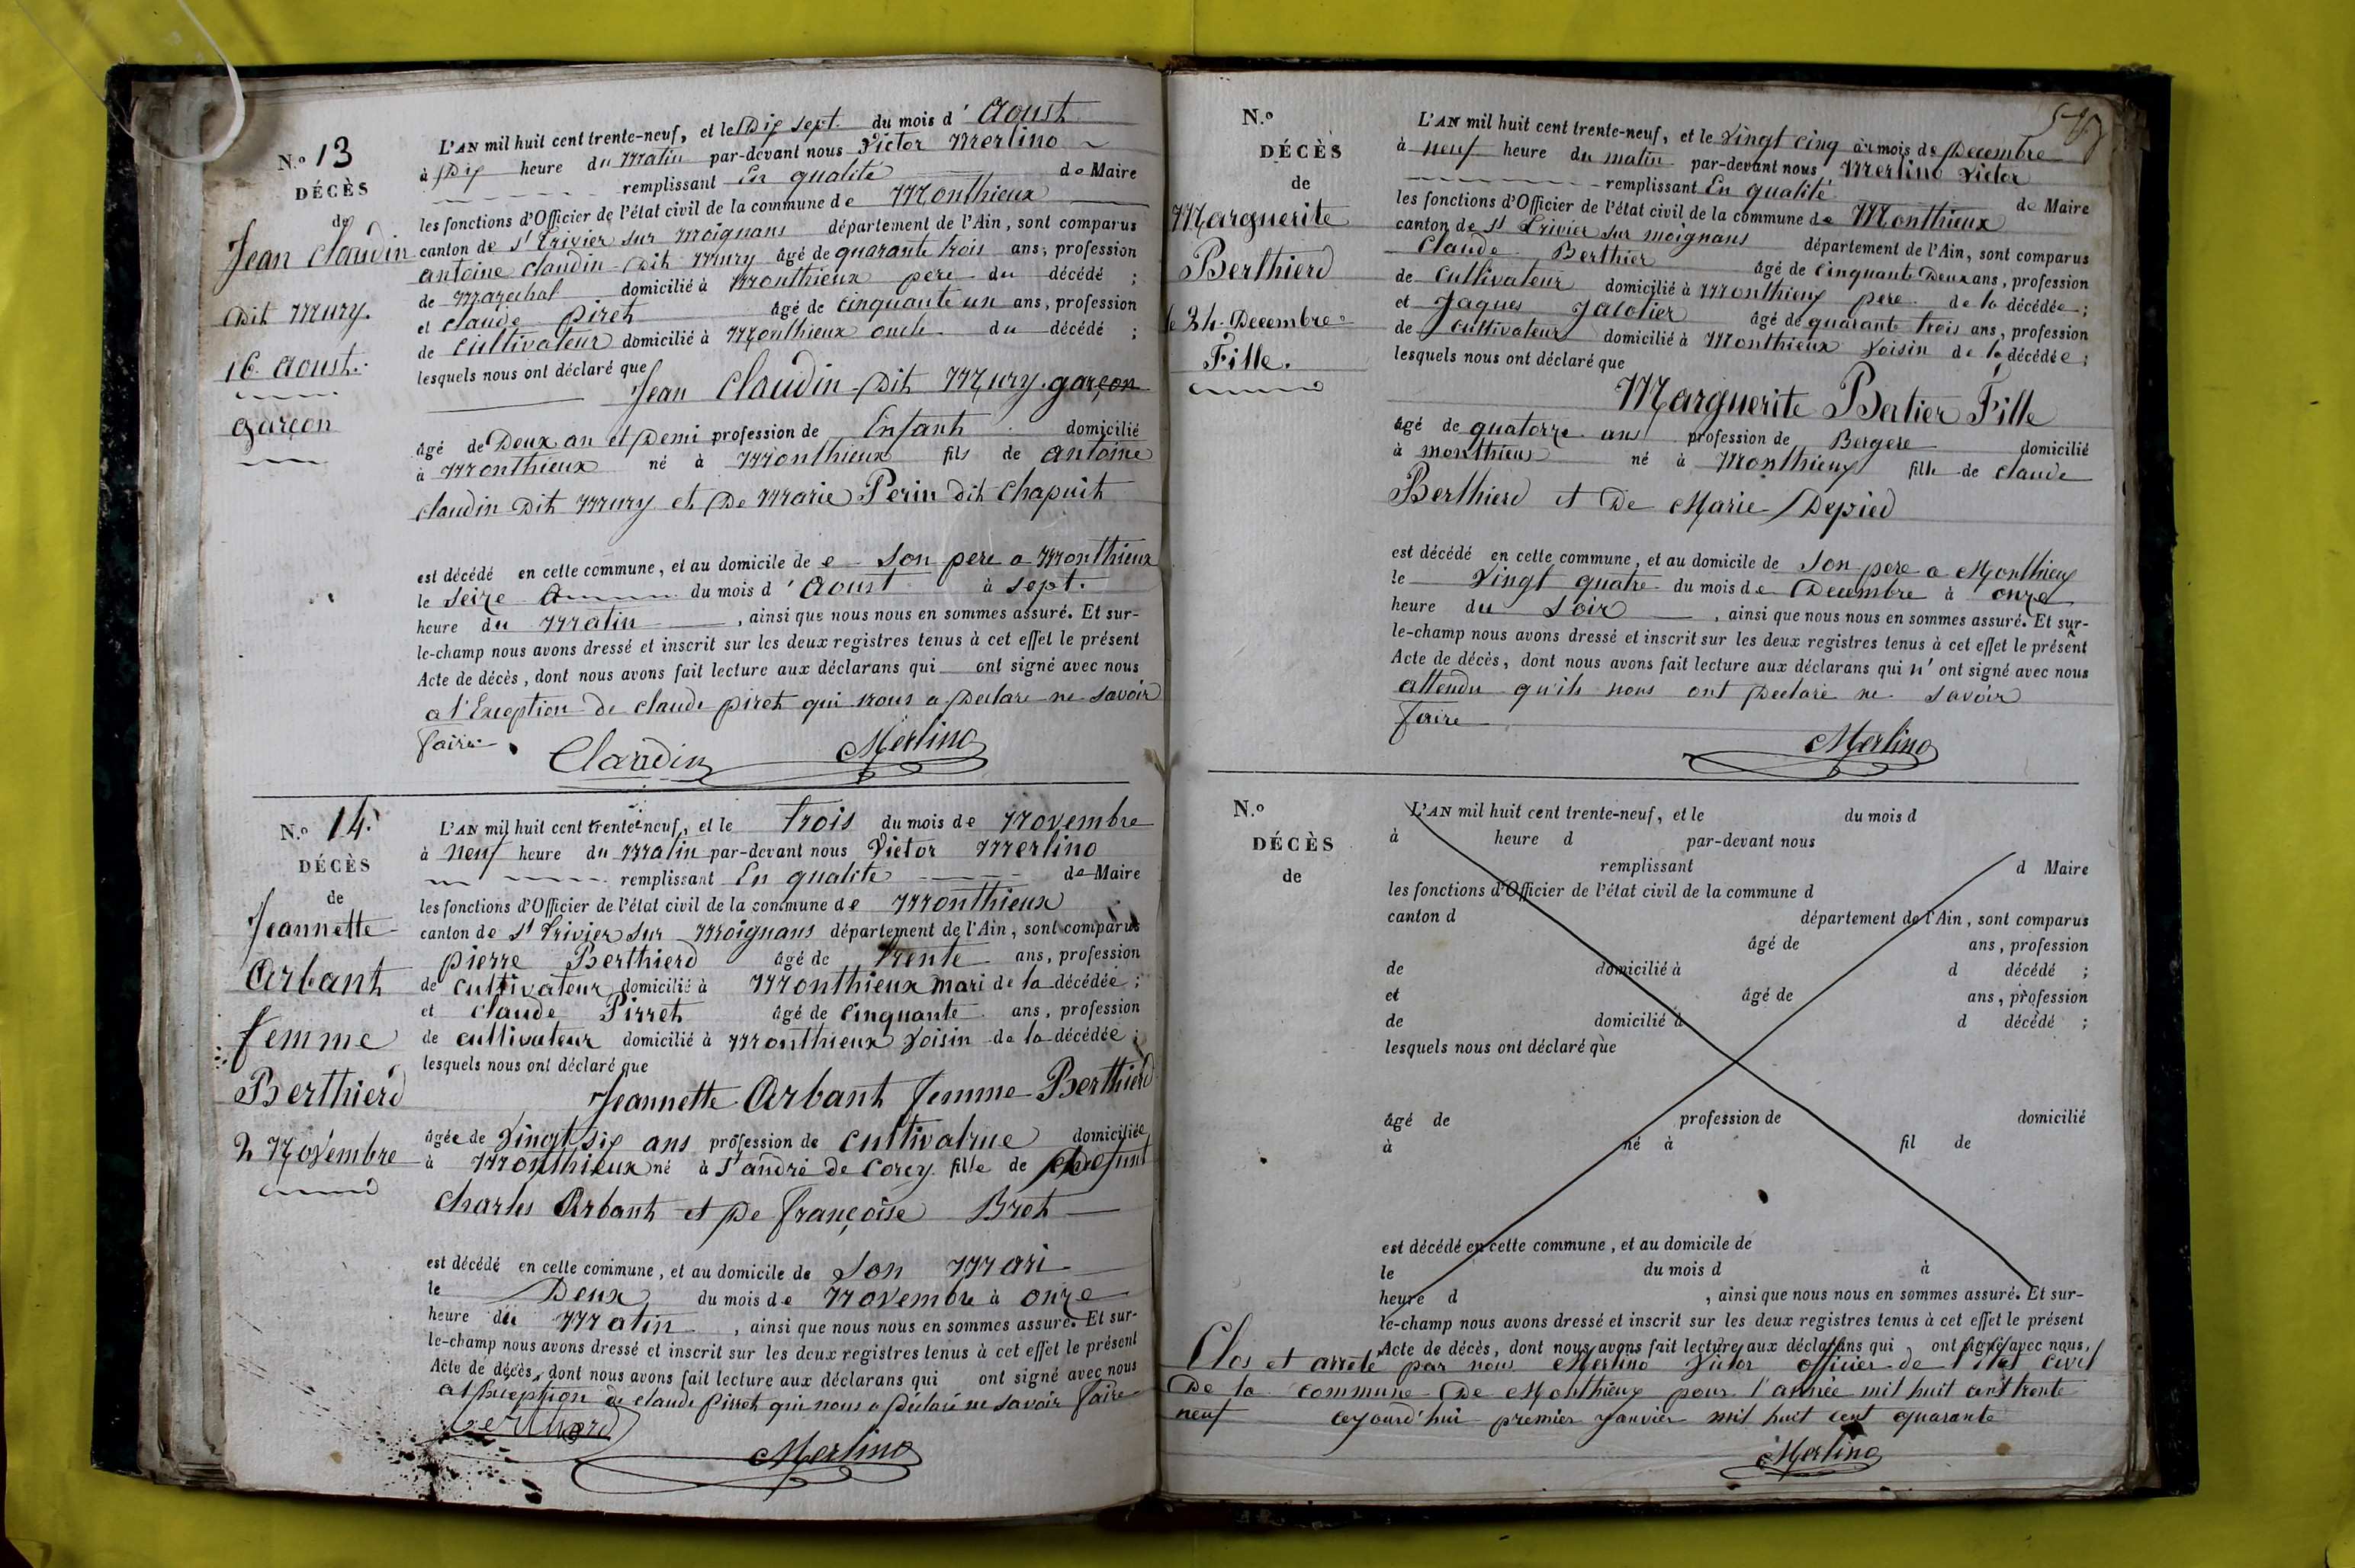 N.o 13
DÉCÈS
de
Jean Claudin
Dit Mury.
16. Aoust.
garçon
L'AN mil huit cent trente-neuf, et le Dix sept. du mois d' Aoust
à Dix heure du Matin par-devant nous Victor Merlino
remplissant En qualité de Maire
les fonctions d'Officier de l'état civil de la commune de Monthieux
canton de St Trivier sur Moignans département de l'Ain, sont comparus
antoine Claudin Dit Mury âgé de quarante trois ans, profession
de Marechal domicilié à Monthieux pere du décédé ;
et claude piret âgé de cinquante un ans, profession
de cultivateur domicilié à Monthieux oncle du décédé ;
lesquels nous ont déclaré que
Jean Claudin Dit Mury. garçon
âgé de Deux an et Demi profession de Enfant domicilié
à Monthieux né à Monthieux fils de antoine
claudin Dit Mury et De Marie Perin dit Chapuit
est décédé en cette commune, et au domicile de e Son pere a Monthieux
le Seize du mois d' Aoust à sept.
heure du Matin , ainsi que nous nous en sommes assuré. Et sur-
le-champ nous avons dressé et inscrit sur les deux registres tenus à cet effet le présent
Acte de décès, dont nous avons fait lecture aux déclarans qui ont signé avec nous
a l'Exception de claude piret qui nous a Declare ne savoir
faire
Claudin Merlino
N.o 14.
DÉCÈS
de
Jeannette
Arbant
femme
Berthierd
2 Novembre
L'AN mil huit cent trente-neuf, et le trois du mois de Novembre
à neuf heure du Matin par-devant nous Victor Merlino
remplissant En qualite de Maire
les fonctions d'Officier de l'état civil de la commune de Monthieux
canton de St Trivier sur Moignans département de l'Ain, sont comparus
pierre Berthierd âgé de trente ans, profession
de cultivateur domicilié à Monthieux mari de la décédée ;
et claude Pirret âgé de Cinquante ans, profession
de cultivateur domicilié à Monthieux Voisin de la décédée ;
lesquels nous ont déclaré que
Jeannette Arbant femme Berthierd
âgée de Vingt six ans profession de cultivatrue domiciliée
à Monthieux né à St andré de Corcy fille de Defunt
Charles Arbant et De françoise Bret
est décédé en cette commune, et au domicile de Son Mari
le Deux du mois de Novembre à onze
heure du Matin , ainsi que nous nous en sommes assuré. Et sur-
le-champ nous avons dressé et inscrit sur les deux registres tenus à cet effet le présent
Acte de décès, dont nous avons fait lecture aux déclarans qui ont signé avec nous
a l'exception de claude Pirret qui nous a Déclaré ne savoir faire
Merlino
N.o
DÉCÈS
de
Marguerite
Berthierd
le 24. Decembre
Fille.
L'AN mil huit cent trente-neuf, et le Vingt cinq du mois de Decembre
à neuf heure du matin par-devant nous Merlino Victor
remplissant En qualité de Maire
les fonctions d'Officier de l'état civil de la commune de Monthieux
canton de St Trivier sur moignans département de l'Ain, sont comparus
Claude Berthier âgé de Cinquante Deux ans, profession
de Cultivateur domicilié à Monthieux pere de la décédée ;
et Jaques Jalotier âgé de quarante trois ans, profession
de Cultivateur domicilié à Monthieux Voisin de la décédée ;
lesquels nous ont déclaré que
Marguerite Bertier Fille
âgé de quatorze ans profession de Bergere domicilié
à monthieux né à Monthieux fille de claude
Berthierd et De Marie Depied
est décédé en cette commune, et au domicile de Son pere a Monthieux
le Vingt quatre du mois de Decembre à onze
heure du Soir , ainsi que nous nous en sommes assuré. Et sur-
le-champ nous avons dressé et inscrit sur les deux registres tenus à cet effet le présent
Acte de décès, dont nous avons fait lecture aux déclarans qui n' ont signé avec nous
attendu qu'ils nous ont Declaré ne savoir
faire
Merlino
N.o
DÉCÈS
de
L'AN mil huit cent trente-neuf, et le du mois d
à heure d par-devant nous
remplissant d Maire
les fonctions d'Officier de l'état civil de la commune d
canton d département de l'Ain, sont comparus
âgé de ans, profession
de domicilié à d décédé ;
et âgé de ans, profession
de domicilié à d décédé ;
lesquels nous ont déclaré que
âgé de profession de domicilié
à né à fil de
est décédé en cette commune, et au domicile de
le du mois d à
heure d , ainsi que nous nous en sommes assuré. Et sur-
le-champ nous avons dressé et inscrit sur les deux registres tenus à cet effet le présent
Acte de décès, dont nous avons fait lecture aux déclarans qui ont signé avec nous.
Clos et arrêté par nous Merlino Victor officier de l'état civil
De la commune De Monthieux pour l'année mil huit cent trente
neuf cejourd'hui premier janvier mil huit cent quarante
Merlino